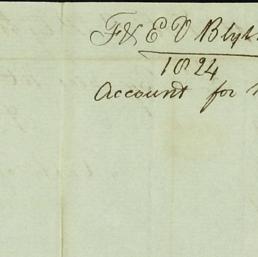 F & E V Blyt
1824
Account for